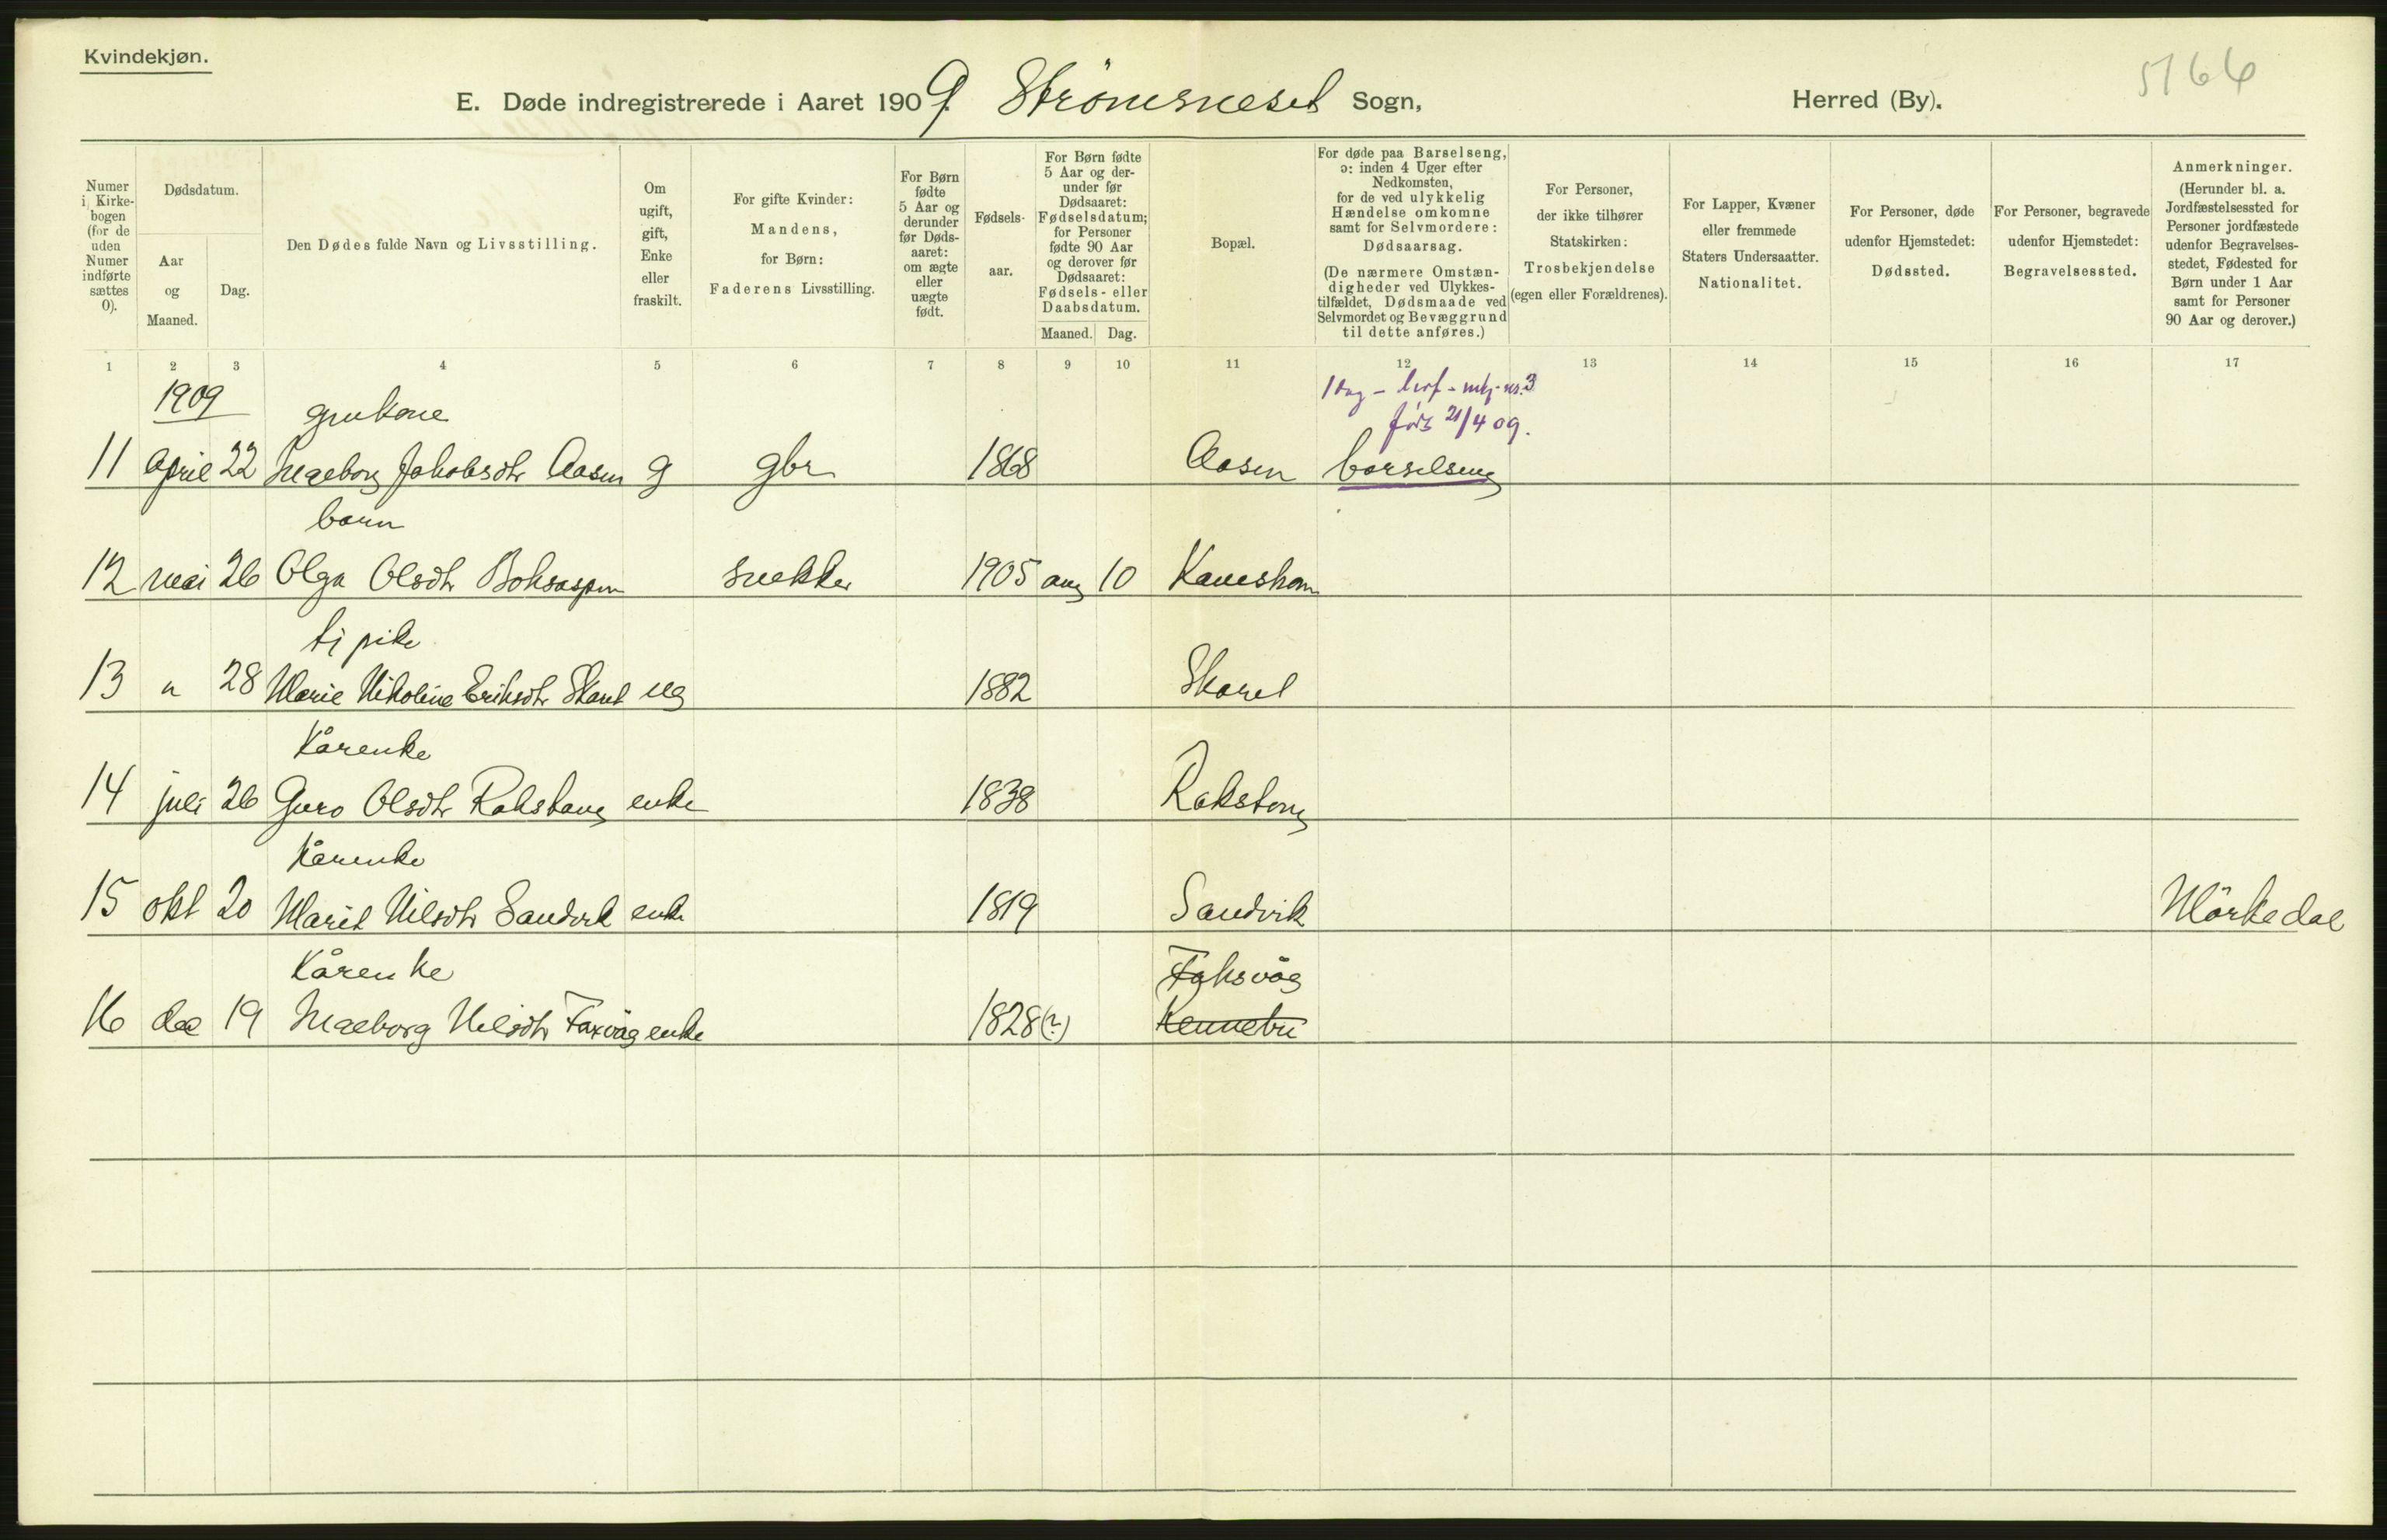 Kvindekjøn.
5166
E. Døde indregistrerede i Aaret 1909. Strömsneset Sogn, Herred (By).
Numer i Kirkebogen (for de uden Numer indførte sættes 0).
Dødsdatum.
Aar og Maaned.
Dag.
Den Dødes fulde Navn og Livsstilling.
Om ugift, gift, Enke eller fraskilt.
For gifte Kvinder: Mandens, for Børn: Faderens Livsstilling.
For Børn fødte 5 Aar og derunder før Dødsaaret: om ægte eller uægte født.
Fødselsaar.
For Børn fødte 5 Aar og derunder før Dødsaaret: Fødselsdatum; for Personer fødte 90 Aar og derover før Dødsaaret: Fødsels- eller Daabsdatum.
Maaned. Dag.
Bopæl.
For døde paa Barselseng, ɔ: inden 4 Uger efter Nedkomsten, for de ved ulykkelig Hændelse omkomne samt for Selvmordere: Dødsaarsag.
(De nærmere Omstændigheder ved Ulykkestilfældet, Dødsmaade ved Selvmordet og Bevæggrund til dette anføres.)
For Personer, der ikke tilhører Statskirken: Trosbekjendelse (egen eller Forældrenes).
For Lapper, Kvæner eller fremmede Staters Undersaatter. Nationalitet.
For Personer, døde udenfor Hjemstedet: Dødssted.
For Personer, begravede udenfor Hjemstedet: Begravelsessted.
Anmerkninger.
(Herunder bl. a. Jordfæstelsessted for Personer jordfæstede udenfor Begravelsesstedet, Fødested for Børn under 1 Aar samt for Personer 90 Aar og derover.)
1 2 3 4 5 6 7 8 9 10 11 12 13 14 15 16 17
1909
21/4 09.
11 april 22 Ingeborg Jakobsdtr Aasen g gbr 1868 Aasen barselseng
barn
12 mai 26 Olga Olsdtr snekker 1905 aug 10
tj pike
13 " 28 Marie Nikoline Eriksdtr Skaret ug 1882 Skaret
Kårenke
14 juli 26 Guro Olsdtr Rakstang enke 1838 Rakstang
Kårenke
15 okt 20 Marit Nilsdtr Sandvik enke 1819 Sandvik Mörkedal
Kårenke Faksvåg
16 dec 19 Ingeborg Nilsdtr Faxvåg enke 1828(?) Kennebu